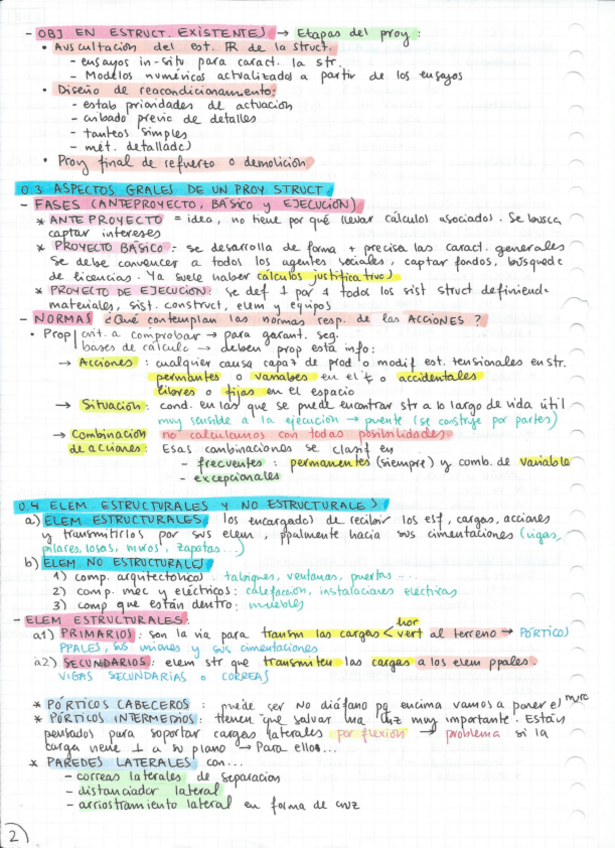 - OBJ EN ESTRUCT. EXISTENTES → Etapas del proy:
• Auscultación del est. IR de la struct.
- ensayos in-situ para caract. la str.
- Modelos numéricos actualizados a partir de los ensayos
• Diseño de reacondicionamiento:
- estab prioridades de actuación
- cribado previo de detalles
- tanteos simples
- mét. detallados
• Proy final de refuerzo o demolición
0.3 ASPECTOS GRALES DE UN PROY STRUCT
- FASES (ANTEPROYECTO, BÁSICO y EJECUCIÓN)
* ANTEPROYECTO = idea, no tiene por qué llevar cálculos asociados. Se busca
captar intereses
* PROYECTO BÁSICO: se desarrolla de forma + precisa las caract. generales
Se debe convencer a todos los agentes sociales, captar fondos, búsqueda
de licencias. Ya suele haber cálculos justificativos
* PROYECTO DE EJECUCIÓN: se def 1 por 1 todos los sist struct definiendo
materiales, sist. construct, elem y equipos
- NORMAS ¿Qué contemplan las normas resp. de las ACCIONES?
• Prop crit. a comprobar → para garant. seg.
bases de cálculo → deben prop esta info:
→ Acciones: cualquier causa capaz de prod o modif est. tensionales en str.
permantes o variables en el t o accidentales
libres o fijas en el espacio
→ Situación: cond. en las que se puede encontrar str a lo largo de vida útil
muy sensible a la ejecución → puente (se construye por partes)
→ Combinación no calculamos con todas posibilidades
de acciones: Esas combinaciones se clasif en
- frecuentes: permanentes (siempre) y comb. de variable
- excepcionales
0.4 ELEM ESTRUCTURALES Y NO ESTRUCTURALES
a) ELEM ESTRUCTURALES: los encargados de recibir los esf, cargas, acciones
y transmitirlos por sus elem, ppalmente hacia sus cimentaciones (vigas,
pilares, losas, muros, zapatas...)
b) ELEM. NO ESTRUCTURALES
1) comp. arquitectónico: tabiques, ventanas, puertas ...
2) comp. mec y eléctricos: calefacción, instalaciones eléctricas
3) comp que están dentro: muebles
- ELEM ESTRUCTURALES:
a1) PRIMARIOS: son la via para transm las cargas < hor vert al terreno → PÓRTICOS
PPALES, sus uniones y sus cimentaciones
a2) SECUNDARIOS: elem str que transmiten las cargas a los elem ppales.
VIGAS SECUNDARIAS o CORREAS
* PÓRTICOS CABECEROS: puede ser no diáfano pq encima vamos a poner el muro
* PÓRTICOS INTERMEDIOS: tienen que salvar una luz muy importante. Están
pensados para soportar cargas laterales por flexión → problema si la
carga viene ⊥ a su plano → Para ellos...
* PAREDES LATERALES con...
- correas laterales de separación
- distanciador lateral
- arriostramiento lateral en forma de cruz
2